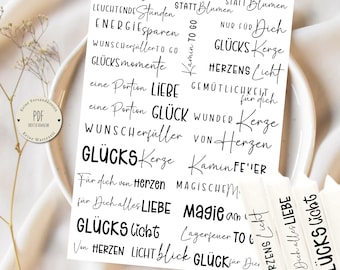 STATT Blumen
STATT Blumen
LEUCHTENDE Stunden
ENERGIE sparen
NUR FÜR Dich
WUNSCHERFÜLLER TO GO
GLÜCKSmomente
Kamin TO GO
GLÜCKS Kerze
HERZENS Licht
eine Portion LIEBE
GEMÜTLICHKEIT
für dich
eine Portion GLÜCK
WUNDER Kerze
WUNSCHerfüller
VON Herzen
GLÜCKS Kerze
Kamin FEUER
Für dich von HERZEN
MAGISCHE
für Dich Alles LIEBE
Magie
GLÜCKS licht
Lagerfeuer TO GO
Von HERZEN
LICHTblick
GLÜCK für
PDF
HERZENS Licht
Dich Alles LIEBE
GLÜCKS licht